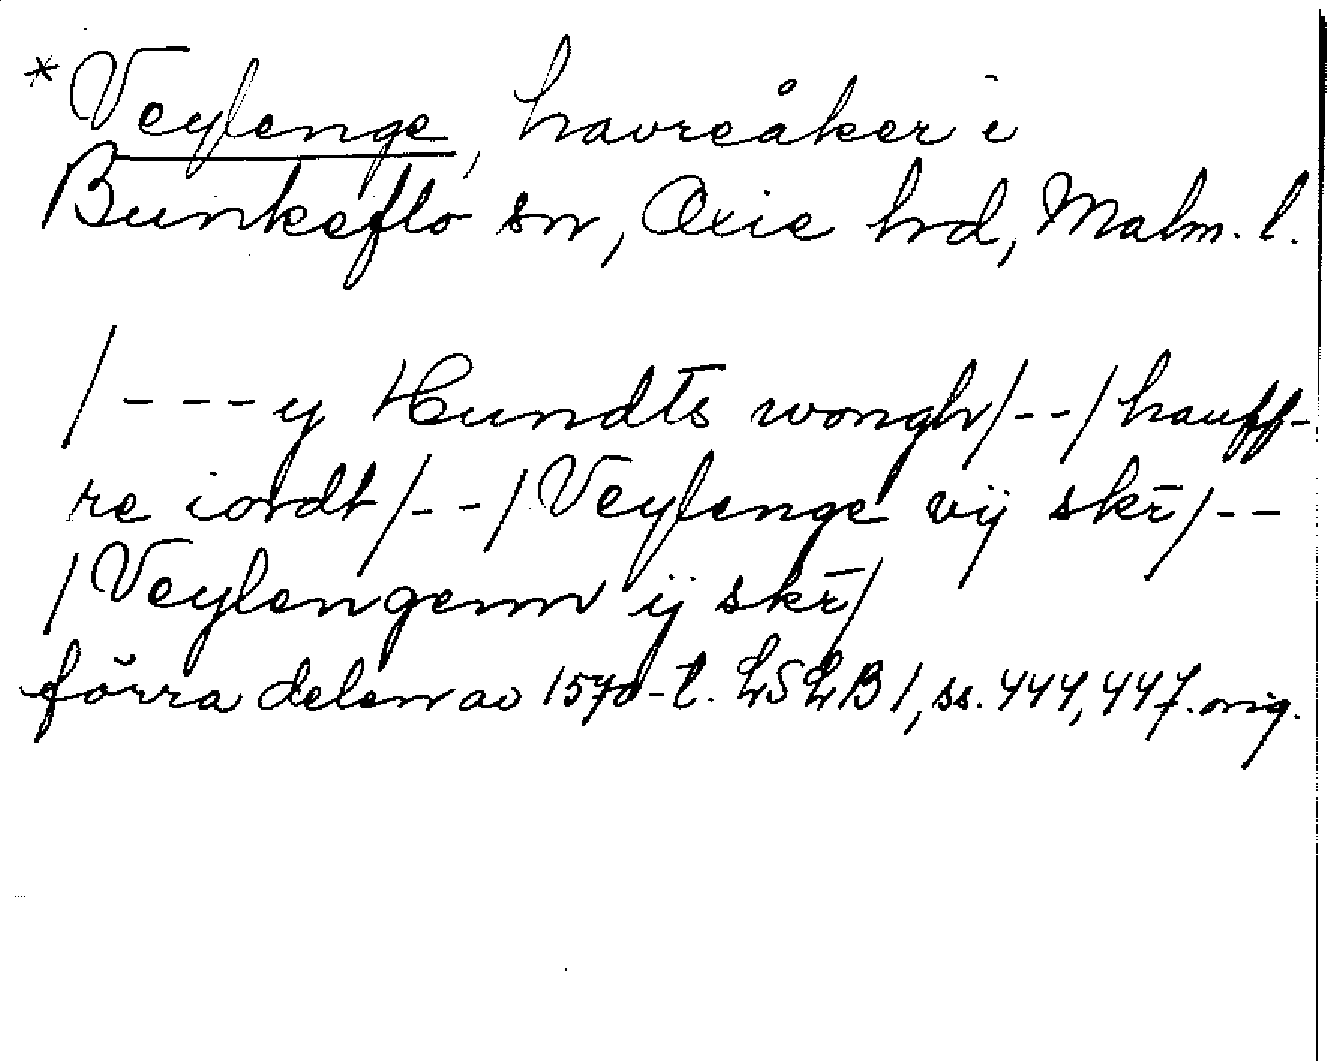 *Veylenge, havreåker i
Bunkeflo sn, Oxie hrd, Malm. l.
/---y Hundts wongh/--/hauff-
re iordt/--/Veylenge vij skr̄/--
/Veylengenn ij skr̄/
förra delen av 1570-t. LSLB 1, ss. 444, 447. orig.